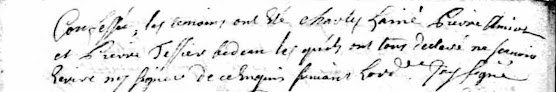 Confessé, les temoins ont été charles Lainé Pierre Amiot
et Pierre Tessier bedeau lesquels ont tous declaré ne scavoir
Ecrire ny signer de ce Enquis suivant l'ord.ce